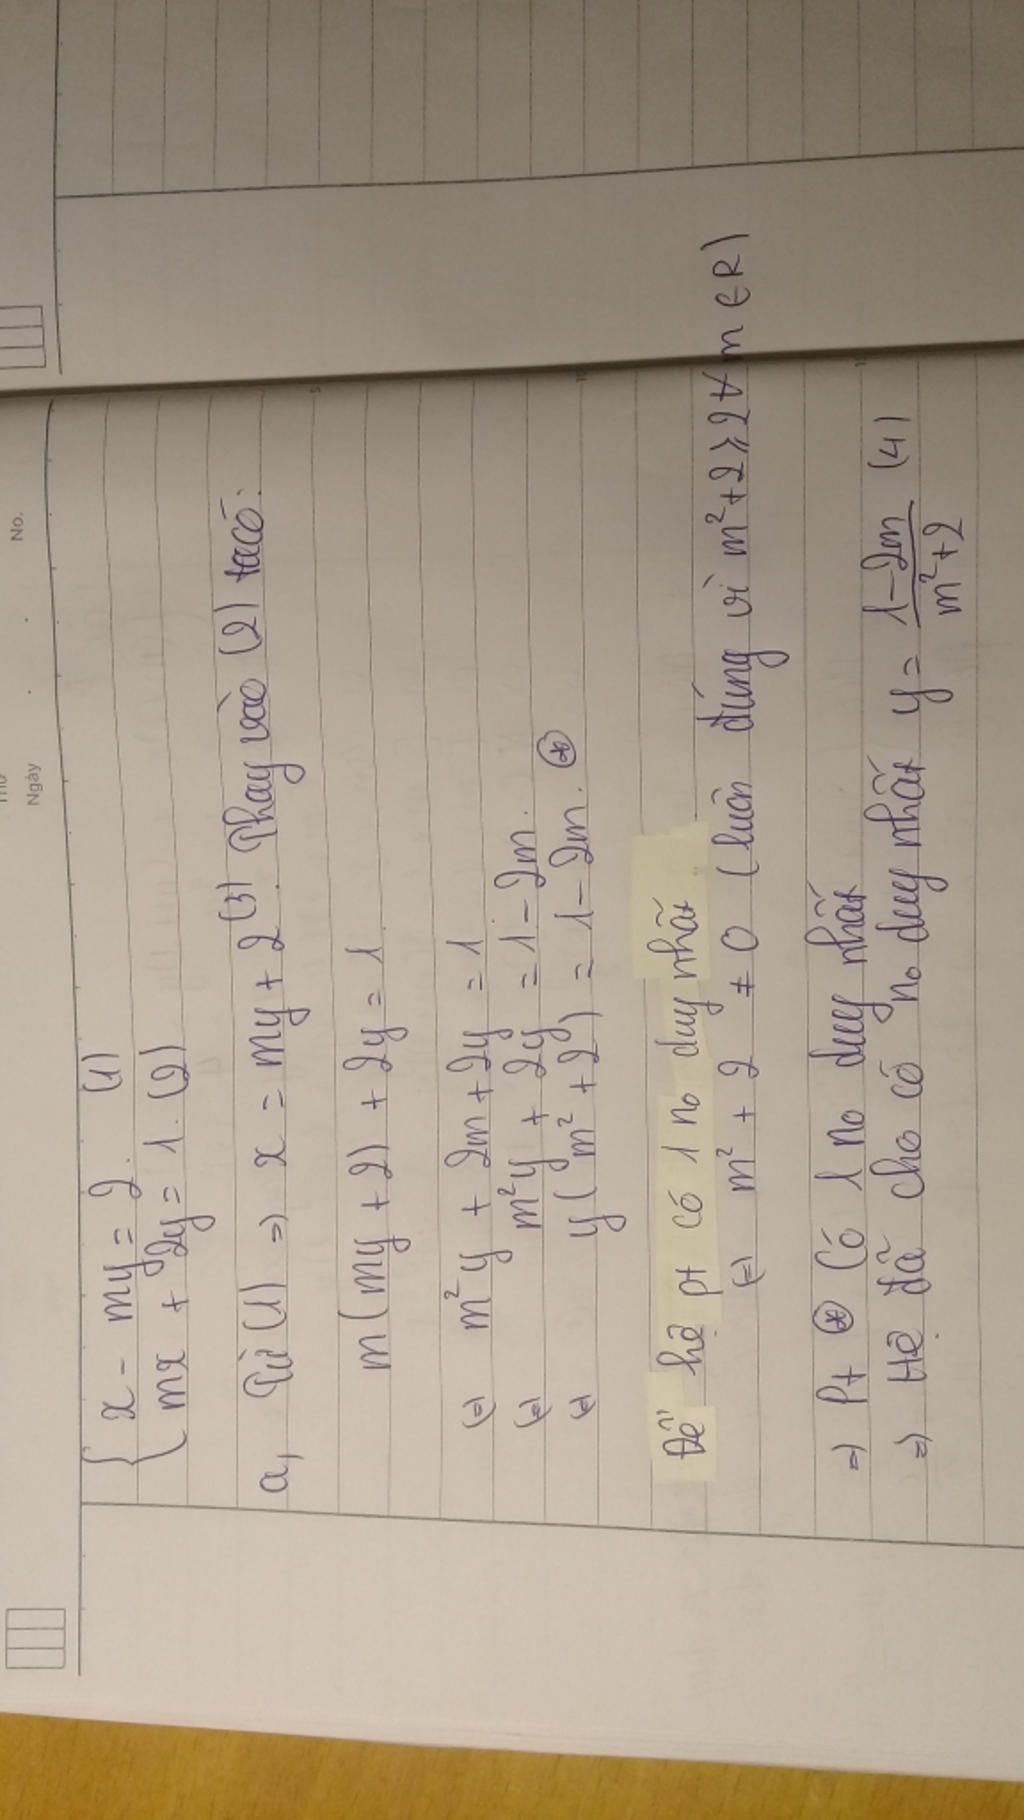 No.
Ngày
{ x - my = 2. (1)
mx + 2y = 1. (2)
a, Từ (1) => x = my + 2 (3) Thay vào (2) ta có:
m(my + 2) + 2y = 1
(=) m²y + 2m + 2y = 1
(=) m²y + 2y = 1 - 2m.
(=) y(m² + 2) = 1 - 2m. (*)
Để hệ pt có 1 no duy nhất
(=) m² + 2 ≠ 0 (luôn đúng vì m² + 2 ⩾ 2 ∀ m ∈ R)
=) Pt (*) Có 1 no duy nhất
=) Hệ đã cho có no duy nhất y = \frac{1-2m}{m²+2} (4)